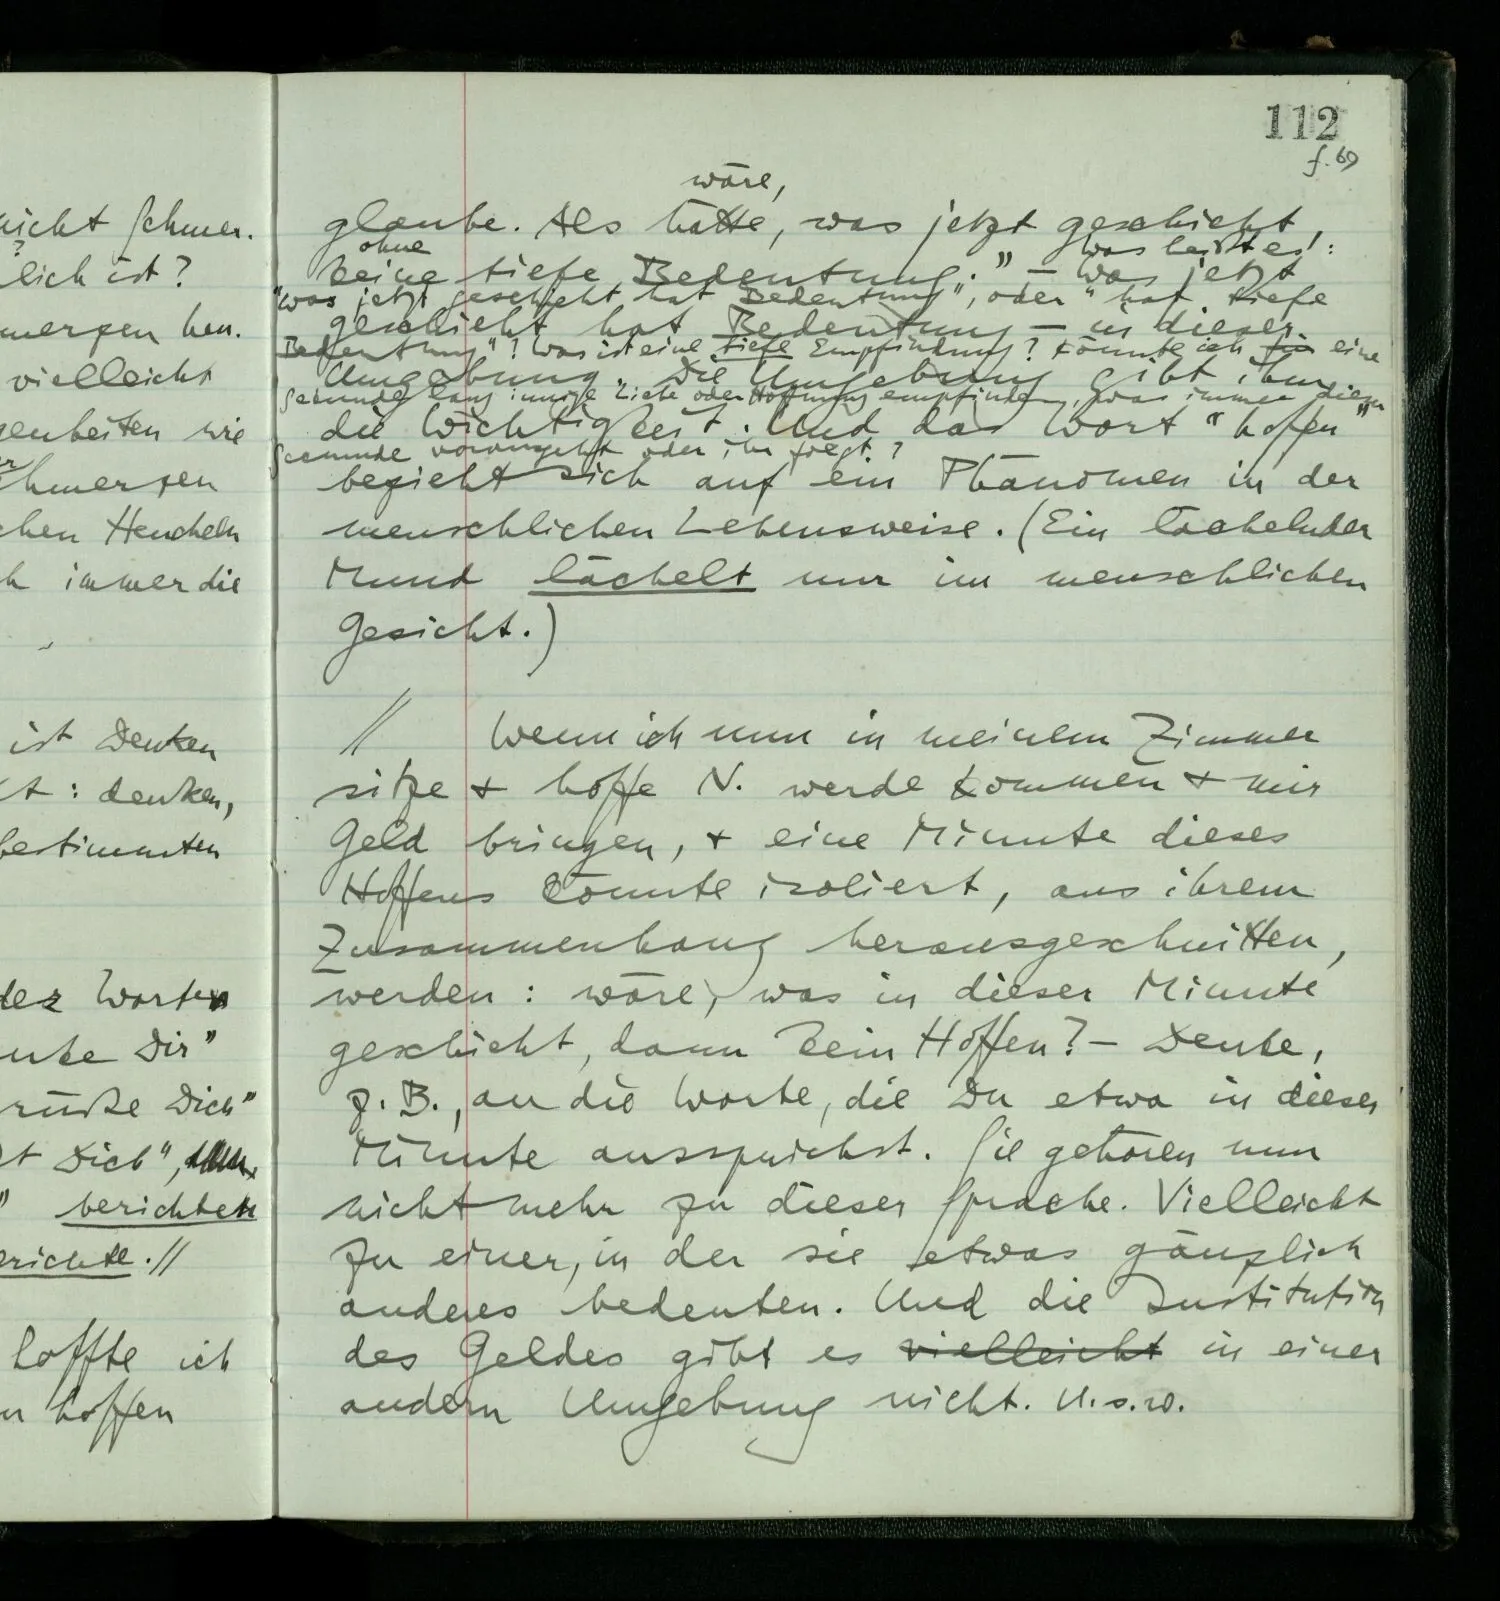 nicht schmer-
lich ist?
merzen kan.
vielleicht
genheiten wie
hmerzen
chen Heucheln
h immer die
ist Denken
t: denken,
bestimmten
der Worten
nke Dir"
rüße Dich"
t Dich",
" berichten
erichte.//
hoffte ich
n hoffen
112
f. 69
wäre,
glaube. Als hätte, was jetzt geschieht,
ohne was heißt es:
keine tiefe Bedeutung." – Was jetzt
"was jetzt geschieht hat Bedeutung", oder "hat tiefe
geschieht hat Bedeutung – in dieser
Bedeutung"? Was ist eine tiefe Empfindung? Könnte ich für eine
Umgebung. Die Umgebung gibt ihm
Sekunde lang innige Liebe oder Hoffnung empfinden, was immer dieser
die Wichtigkeit. Und das Wort "hoffen"
Secunde vorangeht oder ihr folgt?
bezieht sich auf ein Phänomen in der
menschlichen Lebensweise. (Ein lächelnder
Mund lächelt nur im menschlichen
Gesicht.)
// Wenn ich nun in meinem Zimmer
sitze + hoffe N. werde kommen + mir
Geld bringen, + eine Minute dieses
Hoffens könnte isoliert, aus ihrem
Zusammenhang herausgeschnitten,
werden: wäre, was in dieser Minute
geschieht, dann kein Hoffen? – Denke,
z. B., an die Worte, die Du etwa in dieser
Minute aussprichst. Sie gehören nun
nicht mehr zu dieser Sprache. Vielleicht
zu einer, in der sie etwas gänzlich
anderes bedeuten. Und die Institution
des Geldes gibt es vielleicht in einer
andern Umgebung nicht. U.s.w.